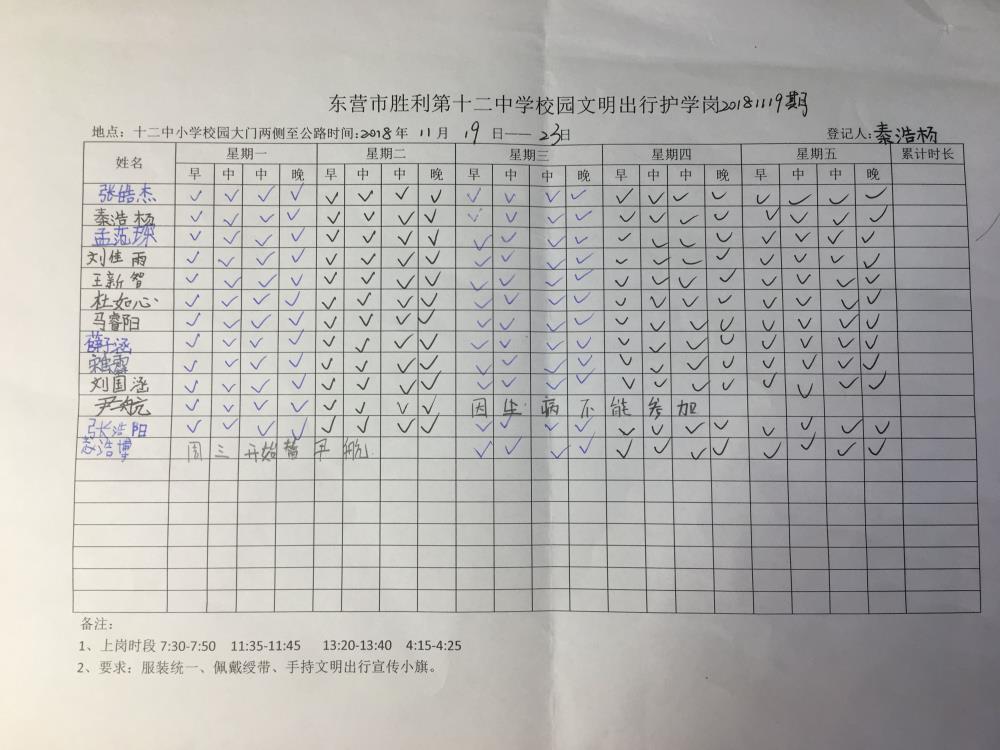 东营市胜利第十二中学校园文明出行护学岗20181119期
地点：十二中小学校园大门两侧至公路时间:2018年 11月 19日——23日 登记人:秦浩杨
姓名 星期一 星期二 星期三 星期四 星期五 累计时长
早 中 中 晚 早 中 中 晚 早 中 中 晚 早 中 中 晚 早 中 中 晚
张皓杰 ✓ ✓ ✓ ✓ ✓ ✓ ✓ ✓ ✓ ✓ ✓ ✓ ✓ ✓ ✓ ✓ ✓ ✓ ✓ ✓
秦浩杨 ✓ ✓ ✓ ✓ ✓ ✓ ✓ ✓ ✓ ✓ ✓ ✓ ✓ ✓ ✓ ✓ ✓ ✓ ✓ ✓
孟范琛 ✓ ✓ ✓ ✓ ✓ ✓ ✓ ✓ ✓ ✓ ✓ ✓ ✓ ✓ ✓ ✓ ✓ ✓ ✓ ✓
刘佳雨 ✓ ✓ ✓ ✓ ✓ ✓ ✓ ✓ ✓ ✓ ✓ ✓ ✓ ✓ ✓ ✓ ✓ ✓ ✓ ✓
王新智 ✓ ✓ ✓ ✓ ✓ ✓ ✓ ✓ ✓ ✓ ✓ ✓ ✓ ✓ ✓ ✓ ✓ ✓ ✓ ✓
杜如心 ✓ ✓ ✓ ✓ ✓ ✓ ✓ ✓ ✓ ✓ ✓ ✓ ✓ ✓ ✓ ✓ ✓ ✓ ✓ ✓
马睿阳 ✓ ✓ ✓ ✓ ✓ ✓ ✓ ✓ ✓ ✓ ✓ ✓ ✓ ✓ ✓ ✓ ✓ ✓ ✓ ✓
薛子涵 ✓ ✓ ✓ ✓ ✓ ✓ ✓ ✓ ✓ ✓ ✓ ✓ ✓ ✓ ✓ ✓ ✓ ✓ ✓ ✓
✓ ✓ ✓ ✓ ✓ ✓ ✓ ✓ ✓ ✓ ✓ ✓ ✓ ✓ ✓ ✓ ✓ ✓ ✓ ✓
刘国涵 ✓ ✓ ✓ ✓ ✓ ✓ ✓ ✓ ✓ ✓ ✓ ✓ ✓ ✓ ✓ ✓ ✓ ✓ ✓ ✓
尹航 ✓ ✓ ✓ ✓ ✓ ✓ ✓ ✓ 因生病不能参加
张浩阳 ✓ ✓ ✓ ✓ ✓ ✓ ✓ ✓ ✓ ✓ ✓ ✓ ✓ ✓ ✓ ✓ ✓ ✓ ✓ ✓
浩博 周三开始替尹航 ✓ ✓ ✓ ✓ ✓ ✓ ✓ ✓ ✓ ✓ ✓ ✓
备注：
1、上岗时段 7:30-7:50 11:35-11:45 13:20-13:40 4:15-4:25
2、要求：服装统一、佩戴绶带、手持文明出行宣传小旗。